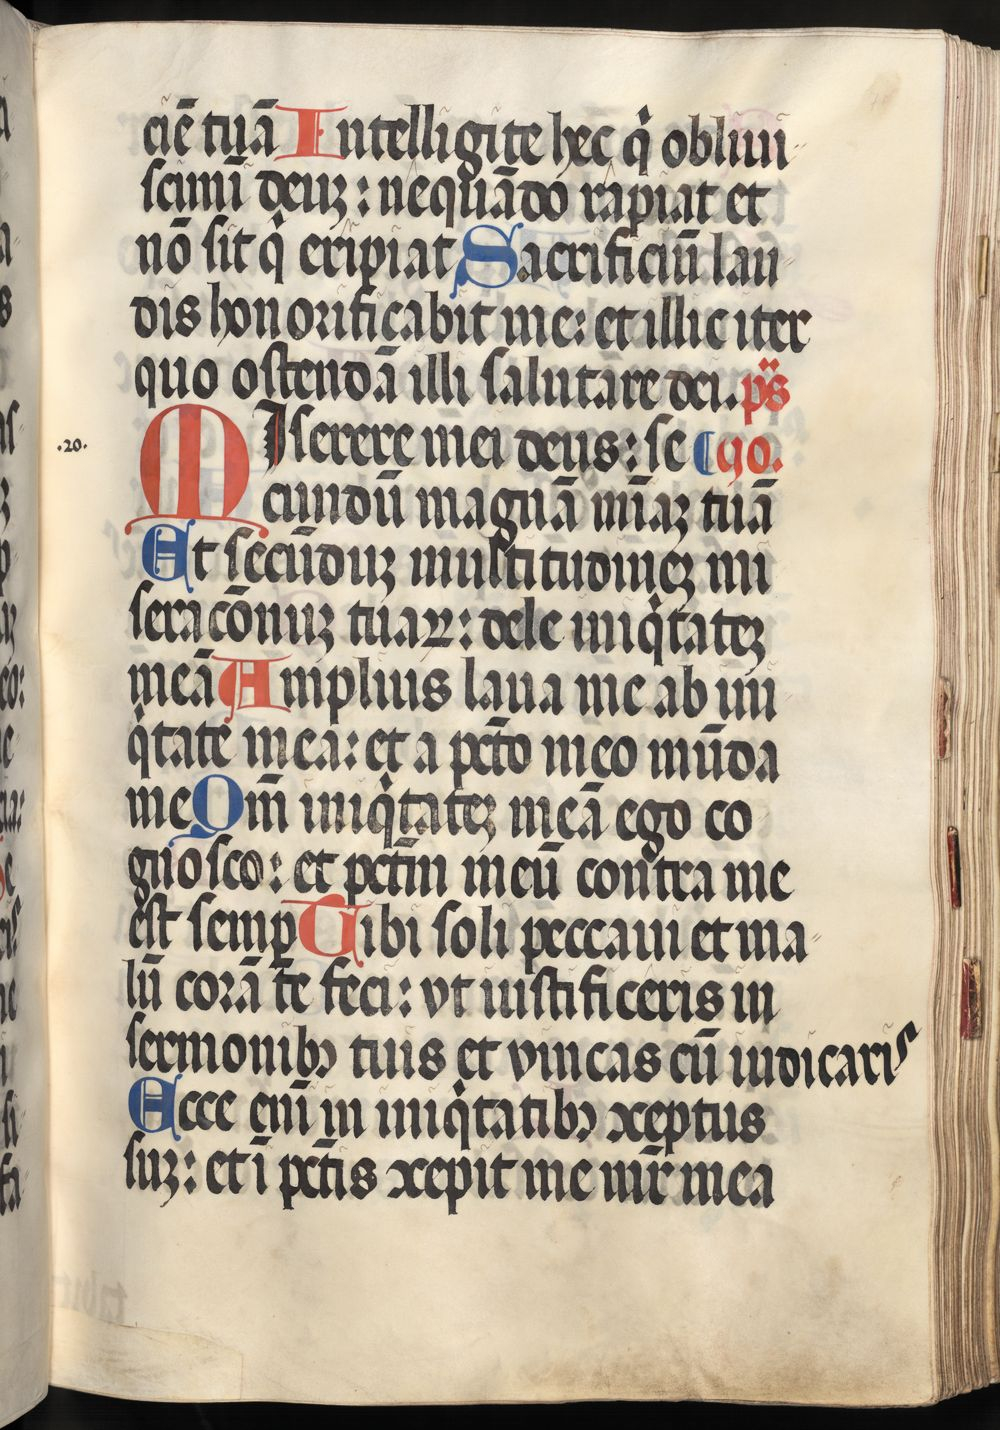 ciē tuā Intelligite hec q̇ obliui
scimī deuʒ : nequādo rapiat et
nō sit q̇ eripiat Sacrificiū lau
dis honorificabit me: et illic iter
quo ostendā illi salutare dei. p̄s
·20· MIserere mei deus : se ¶ 90.
cundū magnā mīaʒ tuā
Et secūduʒ multitudineʒ mi
seracōnuʒ tuaꝝ : dele iniq̇tateʒ
meā Amplius laua me ab ini
q̇tate mea: et a pctō meo mūda
me Qm̄ iniq̇tateʒ meā ego co
gnosco : et pctm̄ meū contra me
est semp Tibi soli peccaui et ma
lū corā te feci : vt iustificeris in
sermonibꝰ tuis et vincas cū iudicaris
Ecce eni̅ in iniq̇tatibꝰ ↄceptus
suʒ : et ī pctīs ↄcepit me mr̄ mea